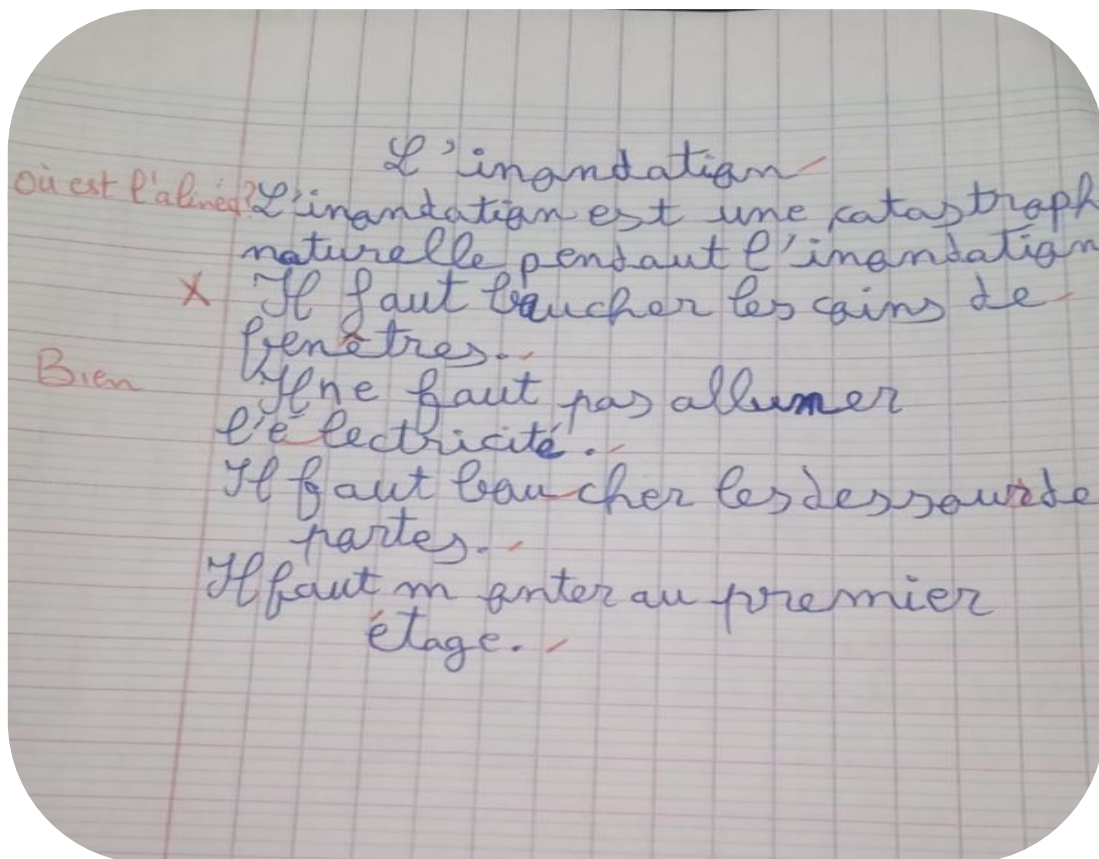 L'inondation
où est l'alinéa? L'inondation est une catastroph
naturelle pendaut l'inondation
X Il faut boucher les coins de
fenêtres.
Bien Il ne faut pas allumer
l'électricité.
Il faut boucher les dessous de
portes.
Il faut monter au premier
étage.